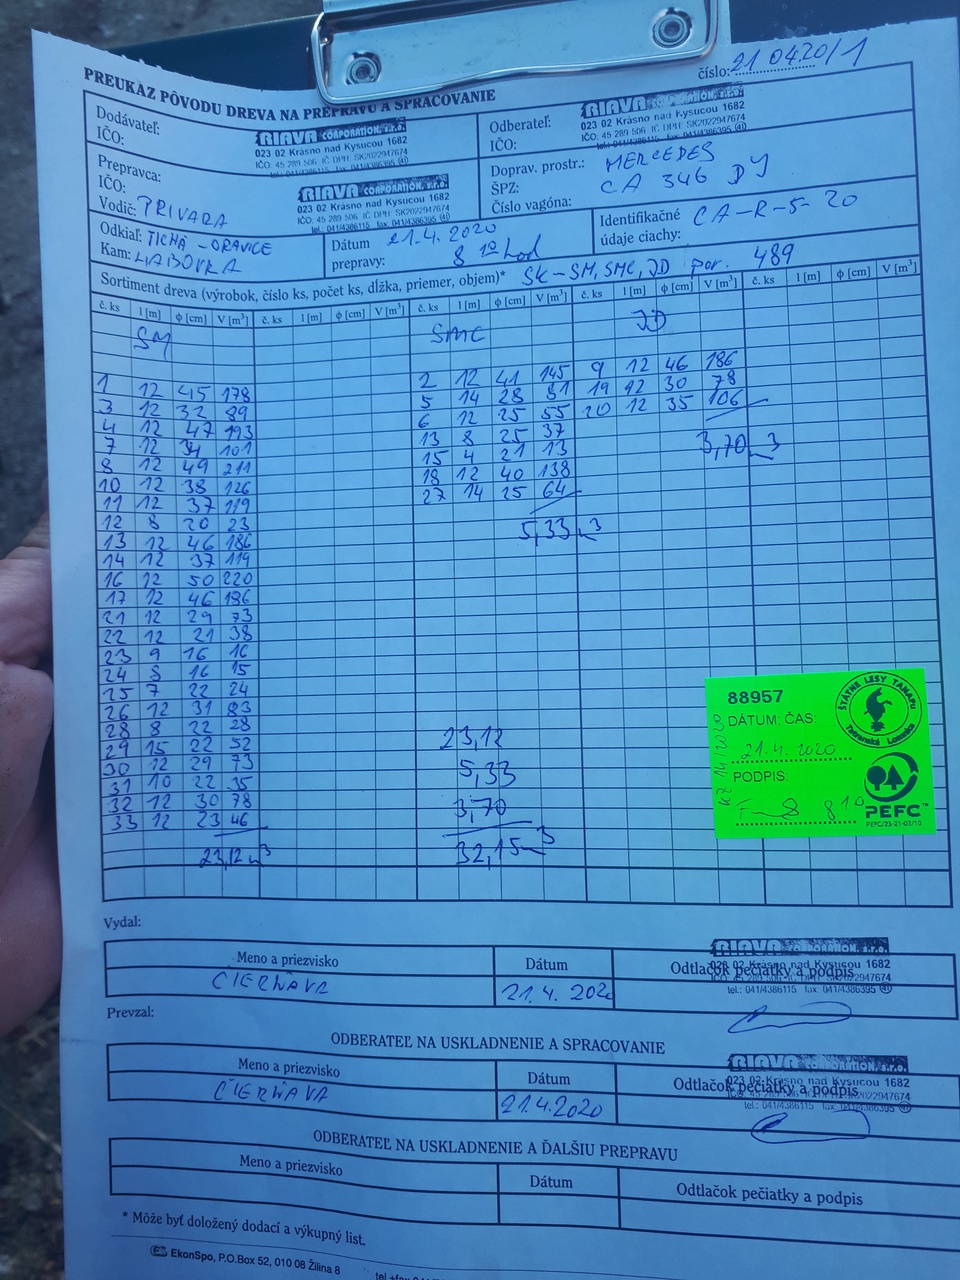 číslo: 21 04 20/1
PREUKAZ PÔVODU DREVA NA PREPRAVU A SPRACOVANIE
Dodávateľ:
IČO:
RIAVA CORPORATION, s.r.o.
023 02 Krásno nad Kysucou 1682
IČO: 45 289 506 IČ DPH: SK2022947674
tel.: 041/4386115 fax: 041/4386395
Odberateľ:
IČO:
RIAVA CORPORATION, s.r.o.
023 02 Krásno nad Kysucou 1682
IČO: 45 289 506 IČ DPH: SK2022947674
tel.: 041/4386115 fax: 041/4386395
Prepravca:
IČO:
Vodič: PRIVARA
RIAVA CORPORATION, s.r.o.
023 02 Krásno nad Kysucou 1682
IČO: 45 289 506 IČ DPH: SK2022947674
tel.: 041/4386115 fax: 041/4386395 (41)
Doprav. prostr.: MERCEDES
ŠPZ: CA 346 DJ
Číslo vagóna:
Odkiaľ: TICHÁ - ORAVICE
Kam:
Dátum
prepravy:
21.4. 2020
8 10 hod
Identifikačné
údaje ciachy:
CA-R-5-20
Sortiment dreva (výrobok, číslo ks, počet ks, dĺžka, priemer, objem)* SK-SM, SMC, JD por. 489
č. ks l [m] ϕ [cm] V [m³] č. ks l [m] ϕ [cm] V [m³] č. ks l [m] ϕ [cm] V [m³] č. ks l [m] ϕ [cm] V [m³] č. ks l [m] ϕ [cm] V [m³]
SM
1 12 45 178
3 12 32 89
4 12 47 193
7 12 34 101
8 12 49 211
10 12 38 126
11 12 37 119
12 8 20 23
13 12 46 186
14 12 37 119
16 12 50 220
17 12 46 186
21 12 29 73
22 12 21 38
23 9 16 16
24 8 16 15
25 7 22 24
26 12 31 83
28 8 22 28
29 15 22 52
30 12 29 73
31 10 22 35
32 12 30 78
33 12 23 46
23,12 m3
SMC
2 12 41 145
5 14 28 81
6 12 25 55
13 8 25 37
15 4 21 13
18 12 40 138
27 14 25 64
5,33 m3
JD
9 12 46 186
19 12 30 78
20 12 35 106
3,70 m3
23,12
5,33
3,70
32,15 m3
88957
DÁTUM; ČAS:
21.4. 2020
PODPIS:
8 10
ŠTÁTNE LESY TANAPU
Tatranská Lomnica
PEFC™
PEFC/23-21-03/10
Vydal:
Meno a priezvisko
Dátum
Odtlačok pečiatky a podpis
ČIERŇAVA
21.4. 2020
RIAVA CORPORATION, s.r.o.
023 02 Krásno nad Kysucou 1682
IČO: 45 289 506 IČ DPH: SK2022947674
tel.: 041/4386115 fax: 041/4386395 (41)
Prevzal:
ODBERATEĽ NA USKLADNENIE A SPRACOVANIE
Meno a priezvisko
Dátum
Odtlačok pečiatky a podpis
ČIERŇAVA
21.4.2020
RIAVA CORPORATION, s.r.o.
023 02 Krásno nad Kysucou 1682
IČO: 45 289 506 IČ DPH: SK2022947674
tel.: 041/4386115 fax: 041/4386395 (41)
ODBERATEĽ NA USKLADNENIE A ĎALŠIU PREPRAVU
Meno a priezvisko
Dátum
Odtlačok pečiatky a podpis
* Môže byť doložený dodací a výkupný list.
EkonSpo, P.O.Box 52, 010 08 Žilina 8